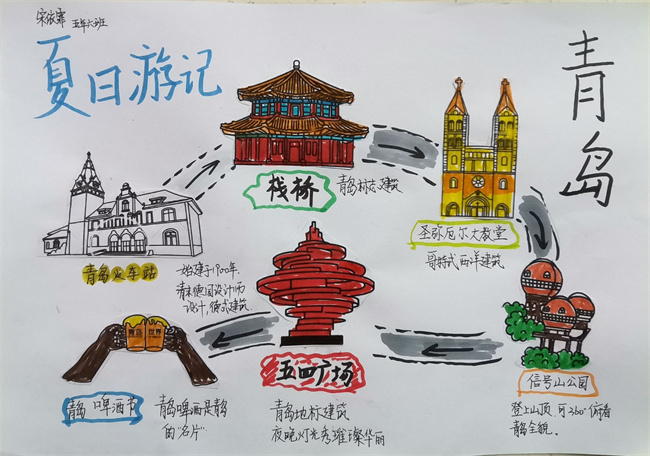 宋依霏 五年六班
夏日游记
青岛
栈桥
青岛标志建筑
圣弥厄尔大教堂
哥特式西洋建筑
青岛火车站
始建于1900年.
德国设计师
设计,德式建筑
信号山公园
登上山顶 可360°俯看
青岛全貌.
五四广场
青岛地标建筑
夜晚灯光秀璀璨华丽
青岛 世界
青岛啤酒节
青岛啤酒是青岛
的"名片"